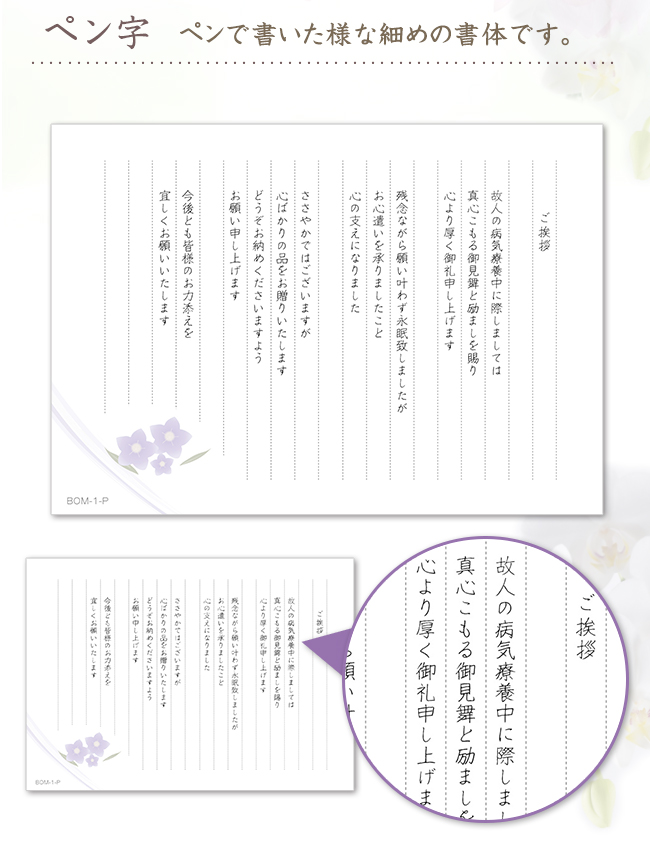 ペン字 ペンで書いた様な細めの書体です。
ご挨拶
故人の病気療養中に際しましては
真心こもる御見舞と励ましを賜り
心より厚く御礼申し上げます
残念ながら願い叶わず永眠致しましたが
お心遣いを承りましたこと
心の支えになりました
ささやかではございますが
心ばかりの品をお贈りいたします
どうぞお納めくださいますよう
お願い申し上げます
今後とも皆様のお力添えを
宜しくお願いいたします
BOM-1-P
ご挨拶
故人の病気療養中に際しましては
真心こもる御見舞と励ましを賜り
心より厚く御礼申し上げます
残念ながら願い叶わず永眠致しましたが
お心遣いを承りましたこと
心の支えになりました
ささやかではございますが
心ばかりの品をお贈りいたします
どうぞお納めくださいますよう
お願い申し上げます
今後とも皆様のお力添えを
宜しくお願いいたします
BOM-1-P
ご挨拶
故人の病気療養中に際しまし
真心こもる御見舞と励ましを
心より厚く御礼申し上げま
願い